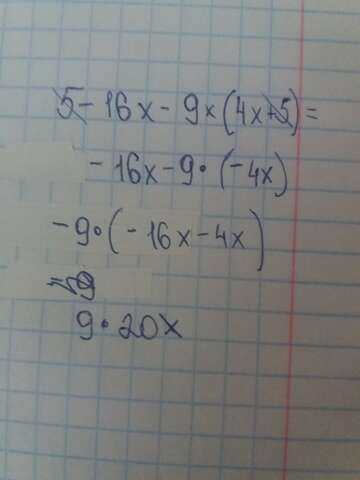 5-16x-9x(4x+5)=
-16x-9·(-4x)
-9·(-16x-4x)
9·20x